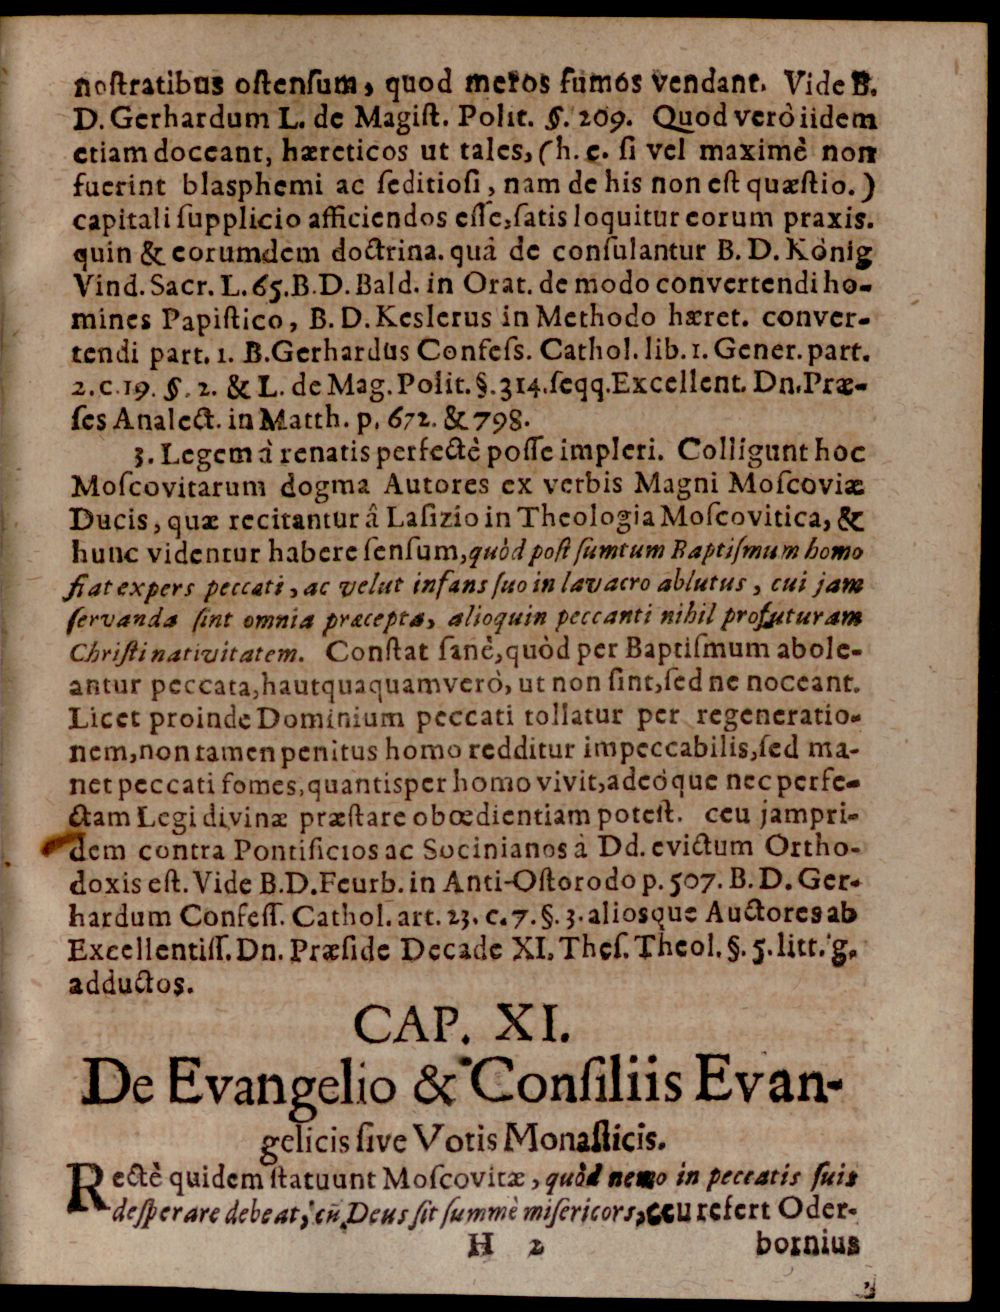 noſtratibus oſtenſum, quod meros fumos vendant. Vide B.
D. Gerhardum L. de Magiſt. Polit. §. 209. Quod verò iidem
etiam doceant, hæreticos ut tales, (h. e. ſi vel maximè non
fuerint blasphemi ac ſeditioſi, nam de his non eſt quæſtio.)
capitali ſupplicio afficiendos eſſe, ſatis loquitur eorum praxis.
quin & eorumdem doctrina. quâ de conſulantur B. D. König
Vind. Sacr. L. 65. B. D. Bald. in Orat. de modo convertendi ho-
mines Papiſtico, B. D. Keslerus in Methodo hæret. conver-
tendi part. 1. B. Gerhardus Confeſs. Cathol. lib. 1. Gener. part.
2. c. 19. §. 2. & L. de Mag. Polit. §. 314. ſeqq. Excellent. Dn. Præ-
ſes Analect. in Matth. p. 672. & 798.
3. Legem â renatis perfectè poſſe impleri. Colligunt hoc
Moſcovitarum dogma Autores ex verbis Magni Moſcoviæ
Ducis, quæ recitantur â Laſizio in Theologia Moſcovitica, &
hunc videntur habere ſenſum, quòd poſt ſumtum Baptiſmum homo
fiat expers peccati, ac velut infans ſuo in lavacro ablutus, cui jam
ſervanda ſint omnia præcepta, alioquin peccanti nihil profuturam
Chriſti nativitatem. Conſtat ſanè, quòd per Baptiſmum abole-
antur peccata, hautquaquam verò, ut non ſint, ſed ne noceant.
Licet proinde Dominium peccati tollatur per regeneratio-
nem, non tamen penitus homo redditur impeccabilis, ſed ma-
net peccati fomes, quantisper homo vivit, adeóque nec perfe-
ctam Legi divinæ præſtare obœdientiam poteſt. ceu jampri-
dem contra Pontificios ac Socinianos à Dd. evictum Ortho-
doxis eſt. Vide B. D. Feurb. in Anti-Oſtorodo p. 507. B. D. Ger-
hardum Confeſſ. Cathol. art. 23. c. 7. §. 3. aliosque Auctores ab
Excellentiſſ. Dn. Præſide Decade XI. Theſ. Theol. §. 5. litt. g.
adductos.
CAP. XI.
De Evangelio & Conſiliis Evan-
gelicis ſive Votis Monaſticis.
Rectè quidem ſtatuunt Moſcovitæ, quòd nemo in peccatis ſuis
deſperare debeat, cũ Deus ſit ſummè miſericors, ceu refert Oder-
H 2 bornius